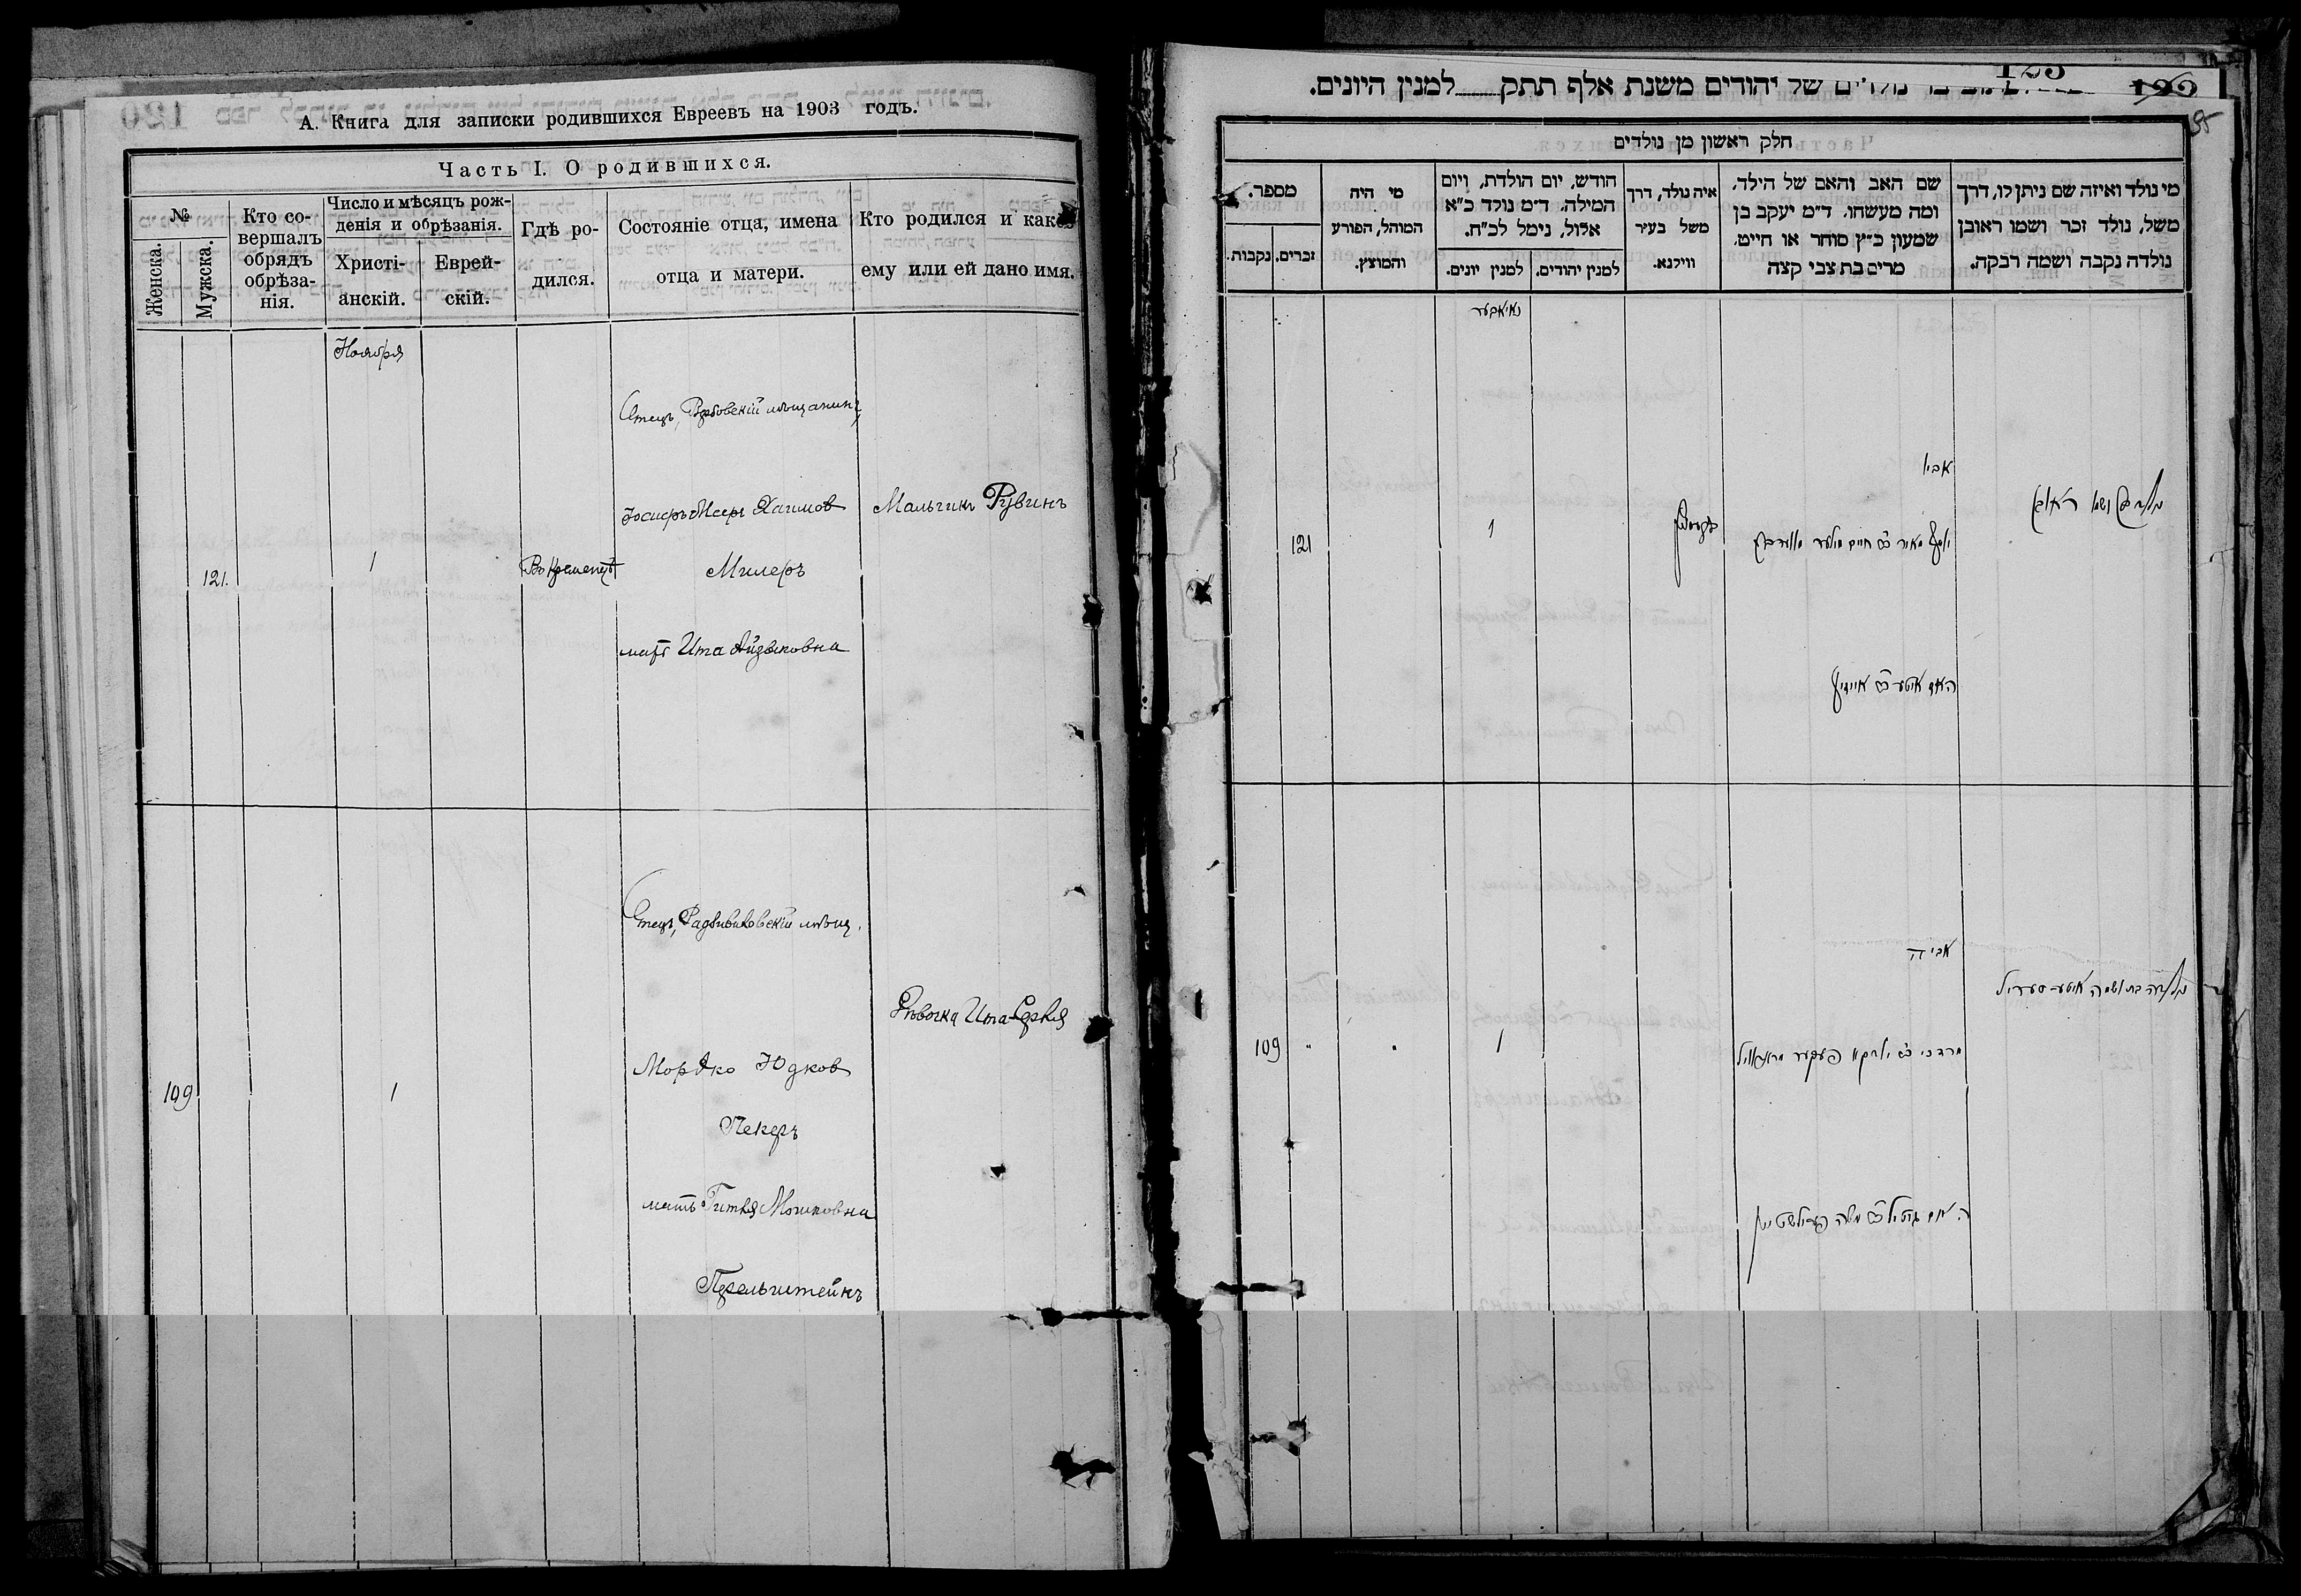 А. Книга для записки родившихся Евреевъ на 1903 годъ.
Часть I. О родившихся.
№
Женска.
Мужска.
Кто совершалъ обрядъ обрѣзанія.
Число и мѣсяцъ рожденія и обрѣзанія.
Христіанскій.
Еврейскій.
Гдѣ родился.
Состояніе отца, имена
отца и матери.
Кто родился и какое
ему или ей дано имя.
Ноября
Отецъ, мѣщанинъ
Хаимов
Мальчикъ Рувинъ
121.
1
Въ Кременцѣ
Милеръ
мать Ита Айзыковна
Отецъ, Радзивиловскій мѣщ.
Дѣвочка Ита-
Мордко Юдков
109
1
Пекеръ
мать Гитля Мошковна
Перельштейнъ
123
של יהודים משנת אלף תתק למנין היונים.
חלק ראשון מן נולדים
מספר.
זכרים.
נקבות.
מי היה
המוהל, הפורע
והמוצץ.
חודש, יום הולדת, ויום
המילה. ד״מ נולד כ״א
אלול, נימל לכ״ח.
למנין יונים.
למנין יהודים.
איה נולד, דרך
משל בעיר
ווילנא.
שם האב והאם של הילד.
ומה מעשהו. ד״מ יעקב בן
שמעון כ״ץ סוחר או חייט.
מרים בת צבי קצה
מי נולד ואיזה שם ניתן לו, דרך
משל, נולד זכר ושמו ראובן
נולדה נקבה ושמה רבקה.
אביו
ושמו ראובן
121
1
יוסף מאיר ב״ר חיים מילער
האם איטע ב״ר אייזיק
אביה
109
1
מרדכי ב״ר יודקא פעקער